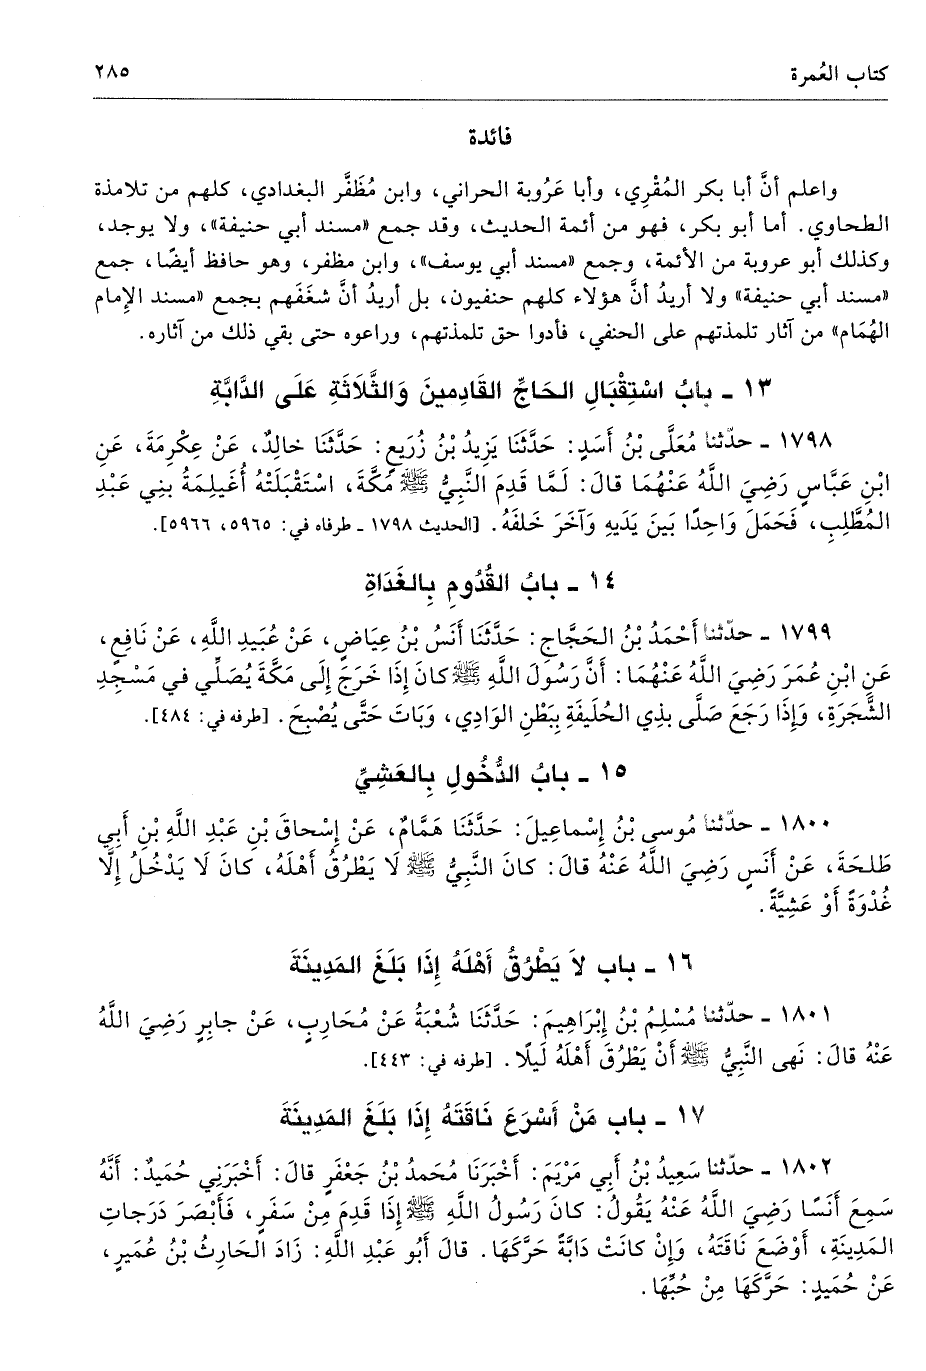 كتاب العُمرة
٢٨٥
فائدة
واعلم أنَّ أبا بكر المُقْرِي، وأبا عَرُوبة الحراني، وابن مُظَفَّر البغدادي، كلهم من تلامذة
الطحاوي. أما أبو بكر، فهو من أئمة الحديث، وقد جمع «مسند أبي حنيفة»، ولا يوجد،
وكذلك أبو عروبة من الأئمة، وجمع «مسند أبي يوسف»، وابن مظفر، وهو حافظ أيضًا، جمع
«مسند أبي حنيفة» ولا أريدُ أنَّ هؤلاء كلهم حنفيون، بل أريدُ أنَّ شغَفَهم بجمع «مسند الإِمام
الهُمَام» من آثار تلمذتهم على الحنفي، فأدوا حق تلمذتهم، وراعوه حتى بقي ذلك من آثاره.
١٣ ـ بابُ اسْتِقْبَالِ الحَاجِّ القَادِمِينَ وَالثَّلَاثَةِ عَلَى الدَّابَّةِ
١٧٩٨ ـ حدّثنا مُعَلَّى بْنُ أَسَدٍ: حَدَّثَنَا يَزِيدُ بْنُ زُرَيعٍ: حَدَّثَنَا خالِدٌ، عَنْ عِكْرِمَةَ، عَنِ
ابْنِ عَبَّاسٍ رَضِيَ اللَّهُ عَنْهُمَا قالَ: لَمَّا قَدِمَ النَّبِيُّ ﷺ مَكَّةَ، اسْتَقْبَلَتْهُ أُغَيلِمَةُ بَنِي عَبْدِ
المُطَّلِبِ، فَحَمَلَ وَاحِدًا بَينَ يَدَيهِ وَآخَرَ خَلفَهُ. [الحديث ١٧٩٨ ـ طرفاه في: ٥٩٦٥، ٥٩٦٦].
١٤ ـ بابُ القُدُومِ بِالغَدَاةِ
١٧٩٩ ـ حدّثنا أَحْمَدُ بْنُ الحَجَّاجِ: حَدَّثَنَا أَنَسُ بْنُ عِيَاضٍ، عَنْ عُبَيدِ اللَّهِ، عَنْ نَافِعٍ،
عَنِ ابْنِ عُمَرَ رَضِيَ اللَّهُ عَنْهُمَا: أَنَّ رَسُولَ اللَّهِ ﷺ كانَ إِذَا خَرَجَ إِلَى مَكَّةَ يُصَلِّي في مَسْجِدِ
الشَّجَرَةِ، وَإِذَا رَجَعَ صَلَّى بِذِي الحُلَيفَةِ بِبَطْنِ الوَادِي، وَبَاتَ حَتَّى يُصْبِحَ. [طرفه في: ٤٨٤].
١٥ ـ بابُ الدُّخُولِ بِالعَشِيِّ
١٨٠٠ ـ حدّثنا مُوسى بْنُ إِسْماعِيلَ: حَدَّثَنَا هَمَّامٌ، عَنْ إِسْحاقَ بْنِ عَبْدِ اللَّهِ بْنِ أَبِي
طَلحَةَ، عَنْ أَنَسٍ رَضِيَ اللَّهُ عَنْهُ قالَ: كانَ النَّبِيُّ ﷺ لَا يَطْرُقُ أَهْلَهُ، كانَ لَا يَدْخُلُ إِلَّا
غُدْوَةً أَوْ عَشِيَّةً.
١٦ ـ باب لاَ يَطْرُقُ أَهْلَهُ إِذَا بَلَغَ المَدِينَةَ
١٨٠١ ـ حدّثنا مُسْلِمُ بْنُ إِبْرَاهِيمَ: حَدَّثَنَا شُعْبَةُ عَنْ مُحَارِبٍ، عَنْ جابِرٍ رَضِيَ اللَّهُ
عَنْهُ قالَ: نَهى النَّبِيُّ ﷺ أَنْ يَطْرُقَ أَهْلَهُ لَيلًا. [طرفه في: ٤٤٣].
١٧ ـ باب مَنْ أَسْرَعَ نَاقَتَهُ إِذَا بَلَغَ المَدِينَةَ
١٨٠٢ ـ حدّثنا سَعِيدُ بْنُ أَبِي مَرْيَمَ: أَخْبَرَنَا مُحَمدُ بْنُ جَعْفَرٍ قالَ: أَخْبَرَنِي حُمَيدٌ: أَنَّهُ
سَمِعَ أَنَسًا رَضِيَ اللَّهُ عَنْهُ يَقُولُ: كانَ رَسُولُ اللَّهِ ﷺ إِذَا قَدِمَ مِنْ سَفَرٍ، فَأَبْصَرَ دَرَجاتِ
المَدِينَةِ، أَوْضَعَ نَاقَتَهُ، وَإِنْ كانَتْ دَابَّةً حَرَّكَهَا. قالَ أَبُو عَبْدِ اللَّهِ: زَادَ الحَارِثُ بْنُ عُمَيرٍ،
عَنْ حُمَيدٍ: حَرَّكَهَا مِنْ حُبِّهَا.